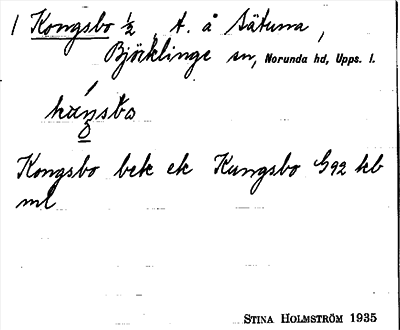 1 Kongsbo ½, t. å Sätuna,
Björklinge sn, Norunda hd, Upps. l.
Kongsbo bek ek Kungsbo G92 kb
ml
STINA HOLMSTRÖM 1935